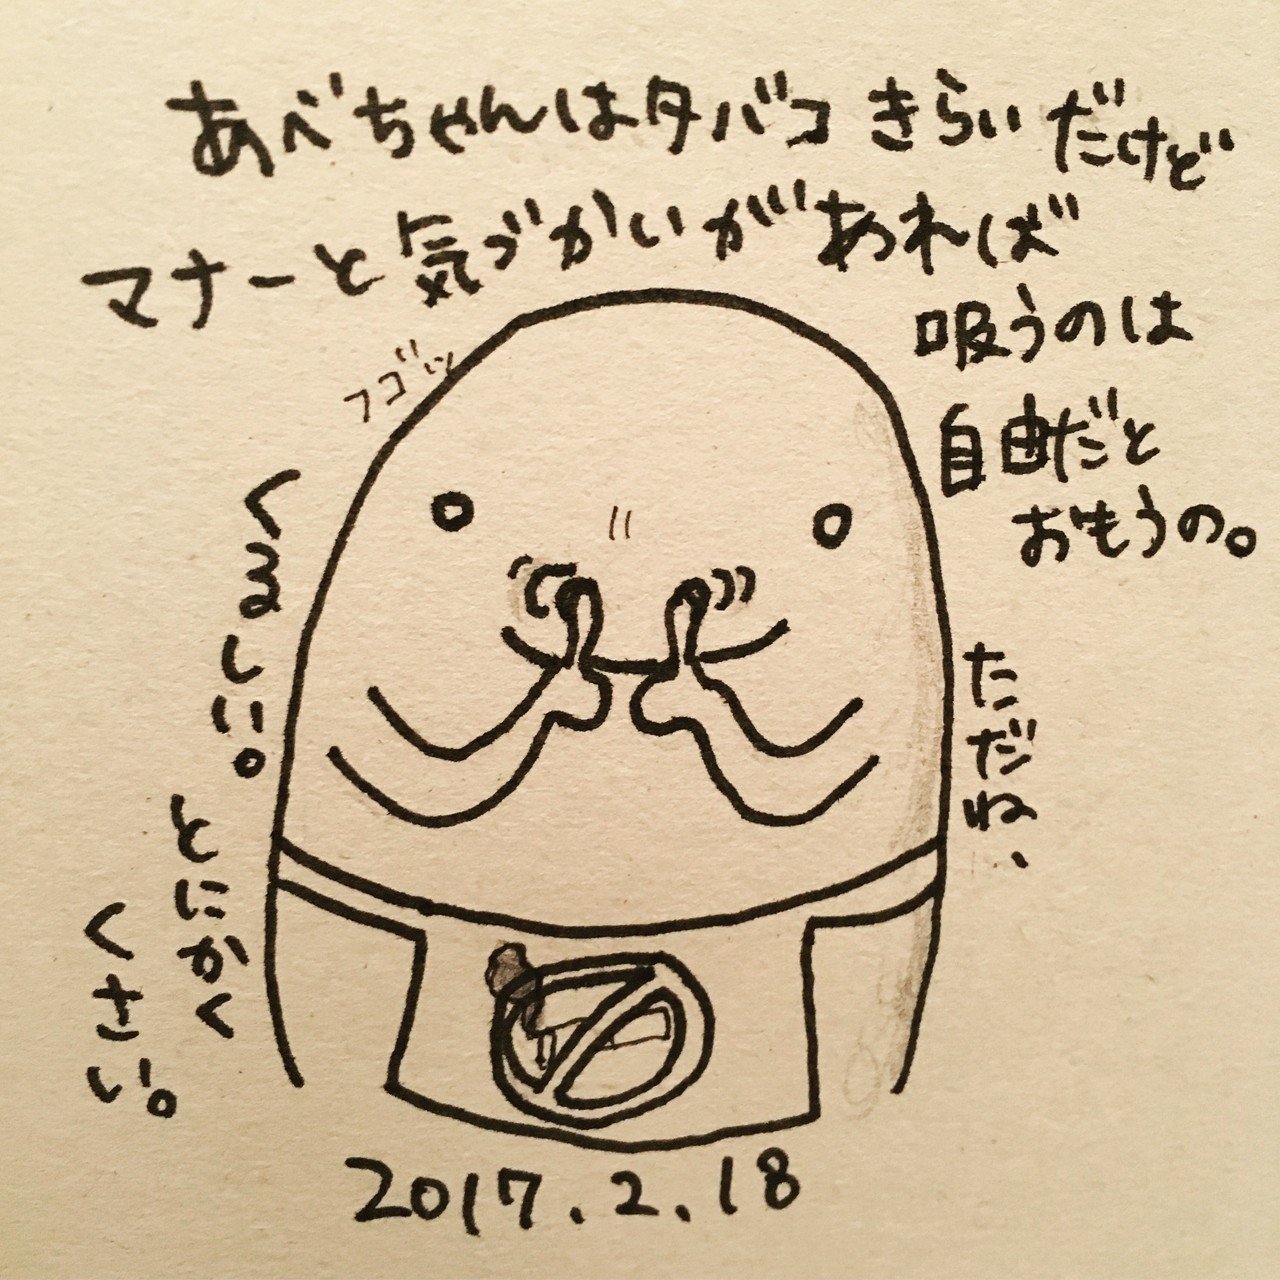 あべちゃんはタバコきらいだけど
マナーと気づかいがあれば
吸うのは
自由だと
おもうの。
ただね、
フゴッ
くるしい。
とにかく
くさい。
2017.2.18